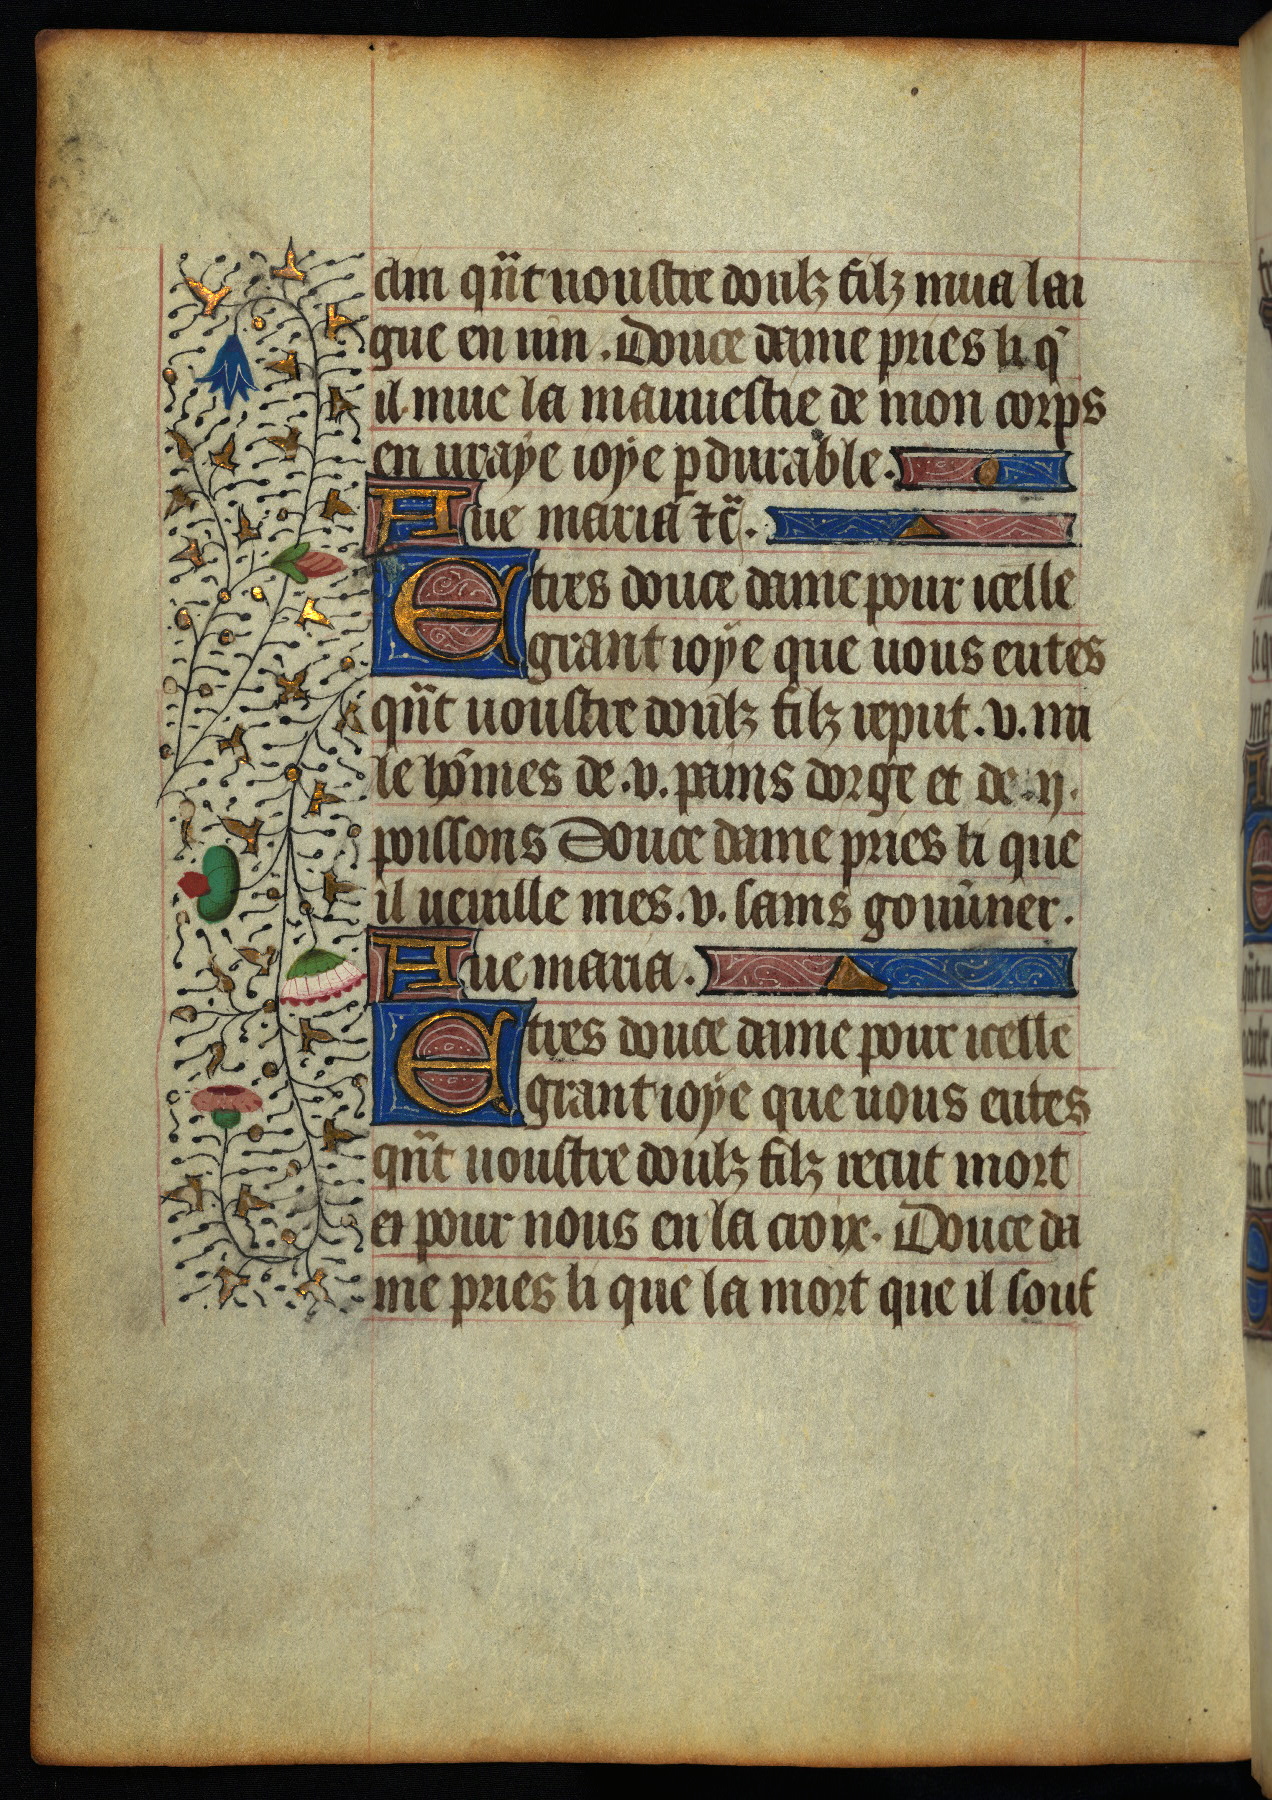 clin qñt uoustre doulz filz mua lai
gue en uin . Douce dame pries li q̃
il mue la mauuestie de mon corps
en uraye ioye pdurable .
Aue maria ⁊c̃ .
E tres douce dame pour icelle
grant ioye que uous eutes
qñt uoustre doulz filz reput . v . mi
le hõmes de . v . pains dorge et de . ij .
poissons Douce dame pries li que
il ueuille mes . v . sains gouũner .
Aue maria .
E tres douce dame pour icelle
grant ioye que uous eutes
qñt uoustre doulz filz recut mort
et pour nous en la croix . Douce da
me pries li que la mort que il souf